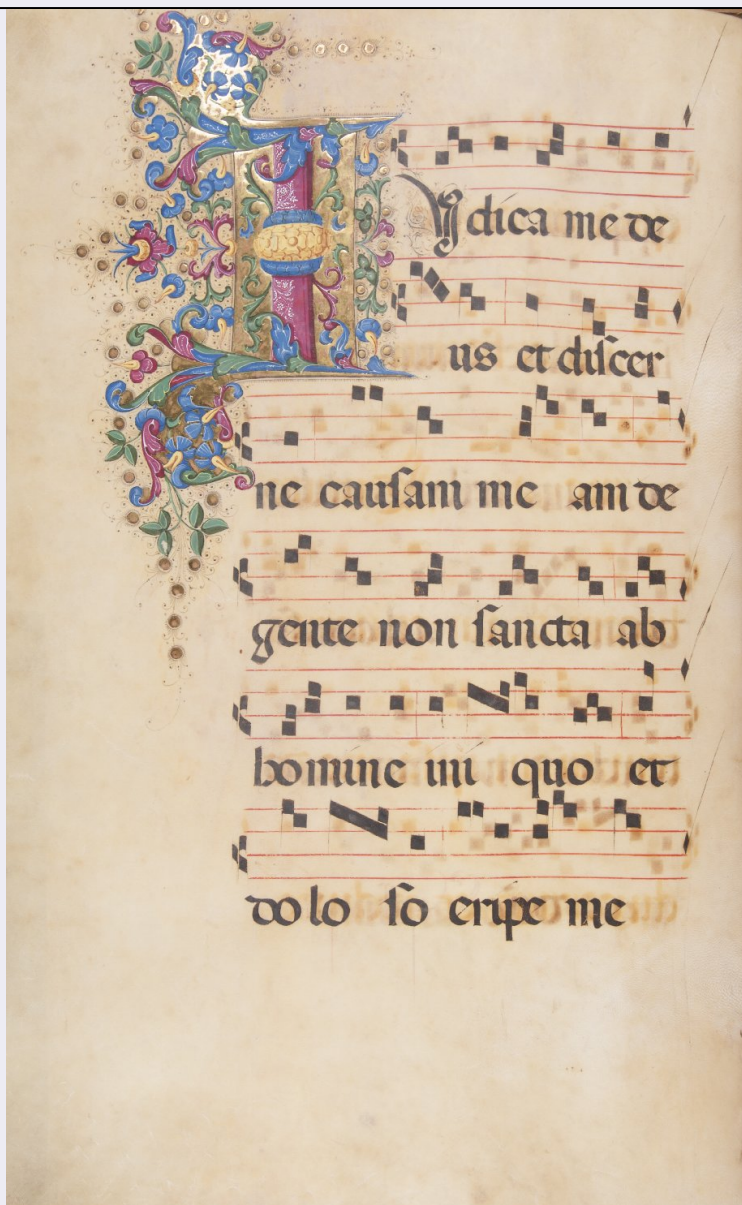 IVdica me de
us et discer
ne causam me am de
gente non sancta ab
homine ini quo et
do lo so eripe me